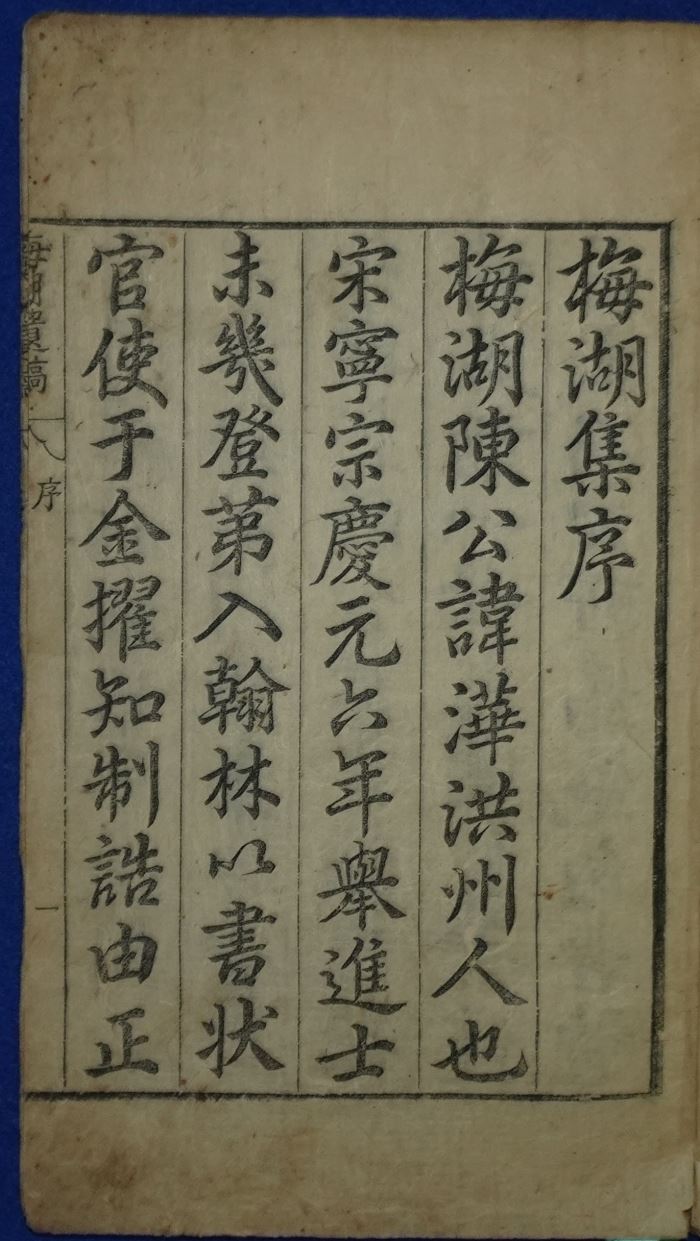 梅湖集序
梅湖陳公諱澕洪州人也
宋寧宗慶元六年舉進士
未幾登苐入翰林以書狀
官使于金擢知制誥由正
梅湖遺稿
序
一